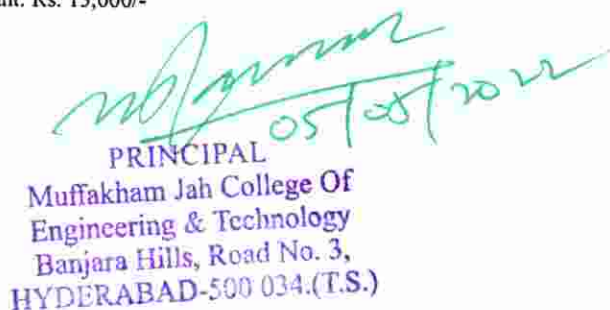 Rs. 15,000/-
05/05/2022
PRINCIPAL
Muffakham Jah College Of
Engineering & Technology
Banjara Hills, Road No. 3,
HYDERABAD-500 034.(T.S.)